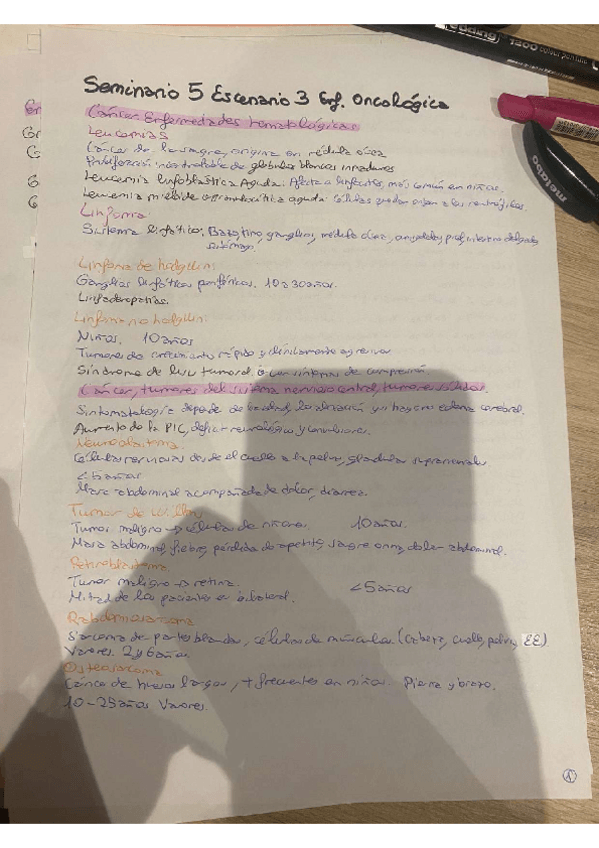 Seminario 5 Escenario 3 Enf. Oncológica
Cáncer Enfermedades hematológicas
Leucemias
Cáncer de la sangre, origina en médula ósea
Proliferación incontrolable de glóbulos blancos inmaduros
Leucemia linfoblástica Aguda: Afecta a linfocitos, más común en niños.
Leucemia mieloide aguda: células que dan
Linfoma
Sistema linfático: Bazo, timo, ganglios, médula ósea, amígdalas, intestino delgado,
estómago.
Linfoma de hodgkin:
Ganglios linfáticos periféricos. 10 a 30 años.
Linfadenopatías.
Linfoma no hodgkin:
Niños. 10 años
Tumores de crecimiento rápido y clínicamente agresivos
Síndrome de lisis tumoral o con síntomas de compresión
Cáncer, tumores del sistema nervioso central, tumores sólidos.
Sintomatología depende de la edad, localización y si hay no edema cerebral.
Aumento de la PIC, déficit neurológico y convulsiones.
Neuroblastoma
Células nerviosas desde el cuello a la pelvis, glándulas suprarrenales
<5 años
Masa abdominal acompañada de dolor, diarrea.
Tumor de wilms
Tumor maligno → células de riñones. 10 años.
Masa abdominal, fiebre, pérdida de apetito, sangre orina, dolor abdominal.
Retinoblastoma
Tumor maligno → retina. <5 años
Mitad de los pacientes es bilateral.
Rabdomiosarcoma
Sarcoma de partes blandas, células de músculos (Cabeza, cuello, pelvis, EE).
Varones. 2 y 6 años
Osteosarcoma
Cáncer de huesos largos, + frecuentes en niños. Pierna y brazo.
10-25 años Varones.
1
edding 1200 colour pen fine
metabo